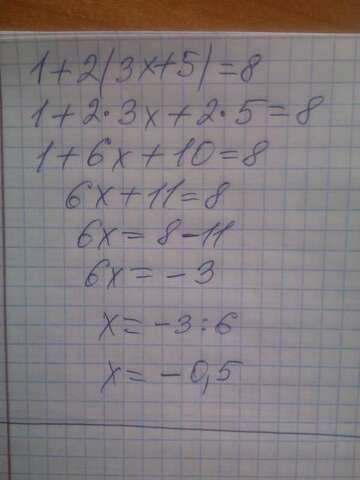 1+2(3x+5)=8
1+2·3x+2·5=8
1+6x+10=8
6x+11=8
6x=8-11
6x=-3
x=-3:6
x=-0,5